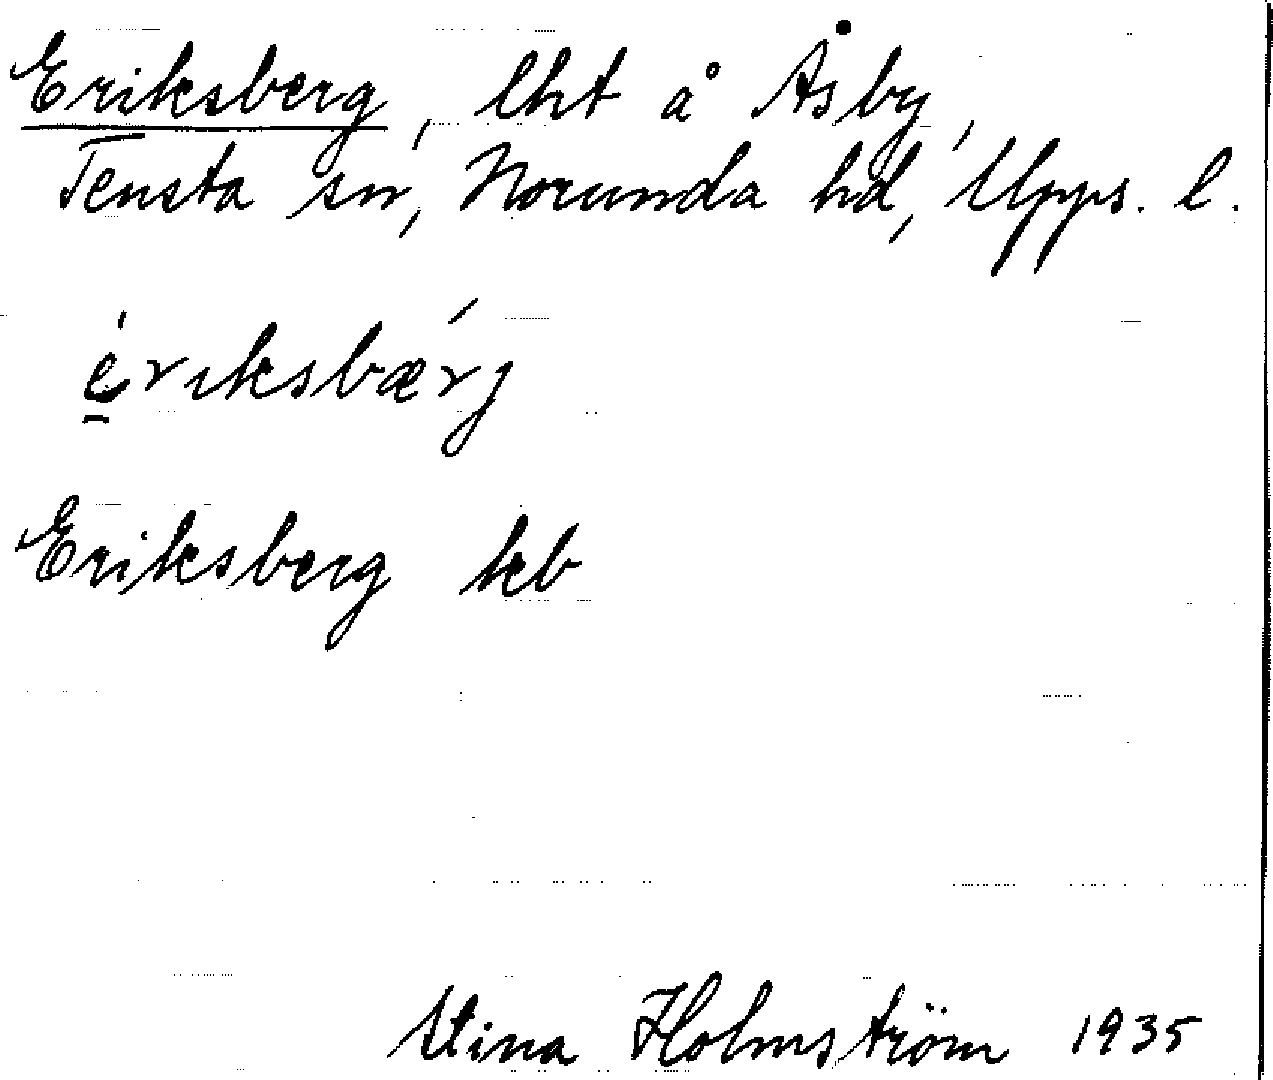 Eriksberg, lht å Åsby,
Tensta sn, Norunda hd, Upps. l.
é̱rıksbæ´rj
Eriksberg kb
Stina Holmström 1935